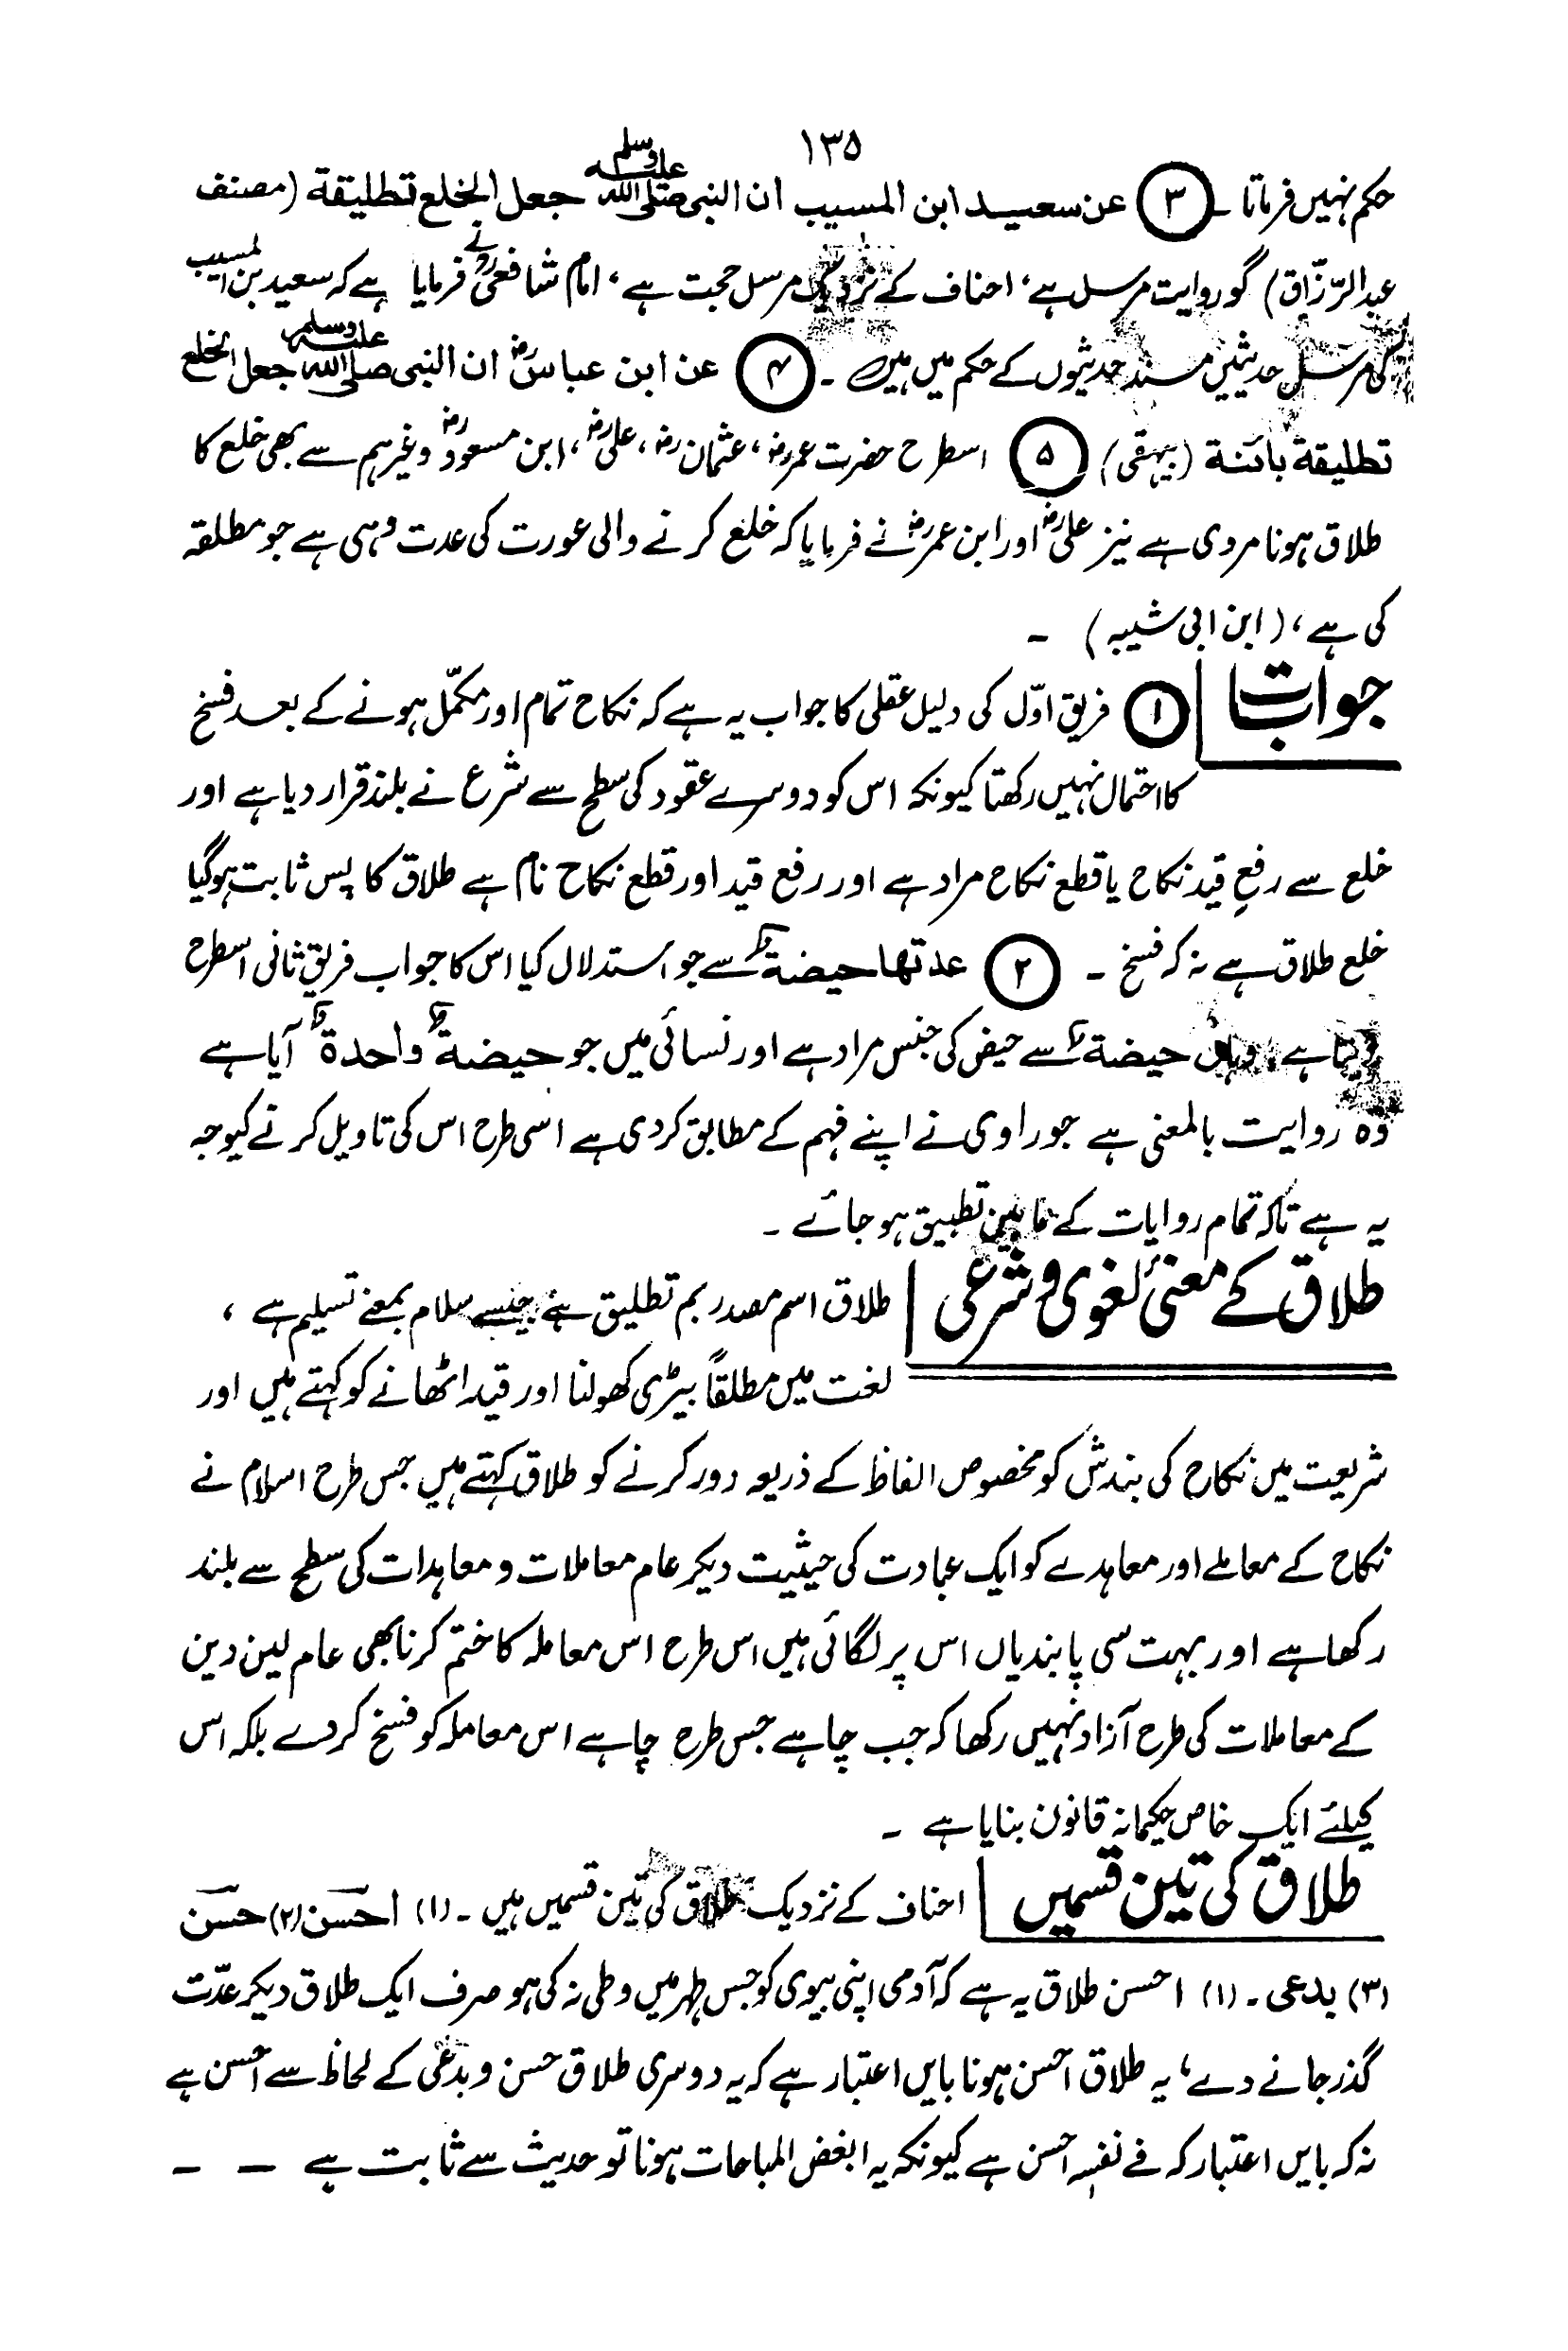 ۱۳۵
حکم نہیں فرماتا ۔ ③ عن سعید ابن المسیب ان النبی صلی اللہ علیہ وسلم جعل الخلع تطلیقة (مصنف
عبدالرّزّاق) گو روایت مرسل ہے، احناف کے نزدیک مرسل حجت ہے، امام شافعیؒ نے فرمایا ہے کہ سعید بن المسیب
کی مرسل حدیثیں مسند حدیثوں کے حکم میں ہیں ۔ ④ عن ابن عباسؓ ان النبی صلی اللہ علیہ وسلم جعل الخلع
تطلیقة بائنة (بیہقی) ⑤ اسطرح حضرت عمرؓ، عثمانؓ، علیؓ، ابن مسعودؓ وغیرہم سے بھی خلع کا
طلاق ہونا مروی ہے نیز علیؓ اور ابن عمرؓ نے فرمایا کہ خلع کرنے والی عورت کی عدت وہی ہے جو مطلقہ
کی ہے، (ابن ابی شیبہ) ۔
جوابات ① فریق اوّل کی دلیل عقلی کا جواب یہ ہے کہ نکاح تمام اور مکمّل ہونے کے بعد فسخ
کا احتمال نہیں رکھتا کیونکہ اس کو دوسرے عقود کی سطح سے شرع نے بلند قرار دیا ہے اور
خلع سے رفعِ قید نکاح یا قطع نکاح مراد ہے اور رفع قید اور قطع نکاح نام ہے طلاق کا پس ثابت ہوگیا
خلع طلاق ہے نہ کہ فسخ ۔ ② عدتها حیضة سے جو استدلال کیا اس کا جواب فریق ثانی اسطرح
دیتا ہے، وہاں حیضة سے حیض کی جنس مراد ہے اور نسائی میں جو حیضة واحدة آیا ہے
وہ روایت بالمعنی ہے جو راوی نے اپنے فہم کے مطابق کردی ہے اسی طرح اس کی تاویل کرنے کیوجہ
یہ ہے تاکہ تمام روایات کے مابین تطبیق ہو جائے ۔
طلاق کے معنیٔ لغوی و شرعی طلاق اسم مصدر بم تطلیق ہے جیسے سلام بمعنے تسلیم ہے،
لغت میں مطلقاً بیڑی کھولنا اور قید اٹھانے کو کہتے ہیں اور
شریعت میں نکاح کی بندش کو مخصوص الفاظ کے ذریعہ دور کرنے کو طلاق کہتے ہیں جس طرح اسلام نے
نکاح کے معاملے اور معاہدے کو ایک عبادت کی حیثیت دیکر عام معاملات و معاہدات کی سطح سے بلند
رکھا ہے اور بہت سی پابندیاں اس پر لگائی ہیں اس طرح اس معاملہ کا ختم کرنا بھی عام لین دین
کے معاملات کی طرح آزاد نہیں رکھا کہ جب چاہے جس طرح چاہے اس معاملہ کو فسخ کردے بلکہ اس
کیلئے ایک خاص حکیمانہ قانون بنایا ہے ۔
طلاق کی تین قسمیں احناف کے نزدیک طلاق کی تین قسمیں ہیں ۔ (۱) احسن (۲) حسن
(۳) بدعی ۔ (۱) احسن طلاق یہ ہے کہ آدمی اپنی بیوی کو جس طہر میں وطی نہ کی ہو صرف ایک طلاق دیکر عدّت
گذر جانے دے، یہ طلاق احسن ہونا بایں اعتبار ہے کہ یہ دوسری طلاق حسن و بدعی کے لحاظ سے احسن ہے
نہ کہ بایں اعتبار کہ فے نفسہٖ احسن ہے کیونکہ یہ ابغض المباحات ہونا تو حدیث سے ثابت ہے ۔ ۔